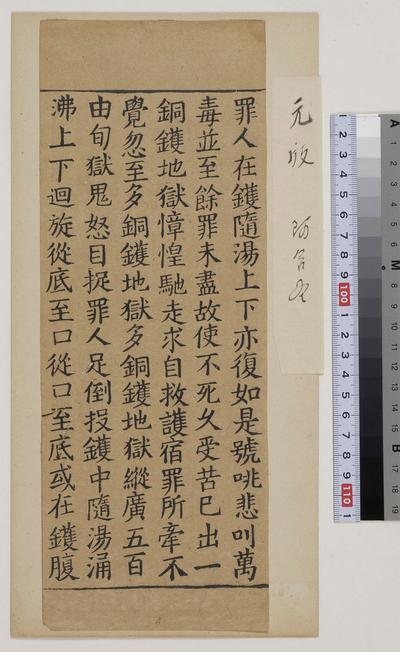 元版 阿含
罪人在鑊隨湯上下亦復如是號咷悲叫萬
毒並至餘罪未盡故使不死久受苦已出一
銅鑊地獄慞惶馳走求自救護宿罪所牽不
覺忽至多銅鑊地獄多銅鑊地獄縱廣五百
由旬獄鬼怒目捉罪人足倒投鑊中隨湯涌
沸上下迴旋從底至口從口至底或在鑊腹
1 2 3 4 5 6 7 8 9 100 1 2 3 4 5 6 7 8 9 110 1
A 1 2 3 4 5 6 M 8 9 10 11 12 13 14 15 B 17 18 19